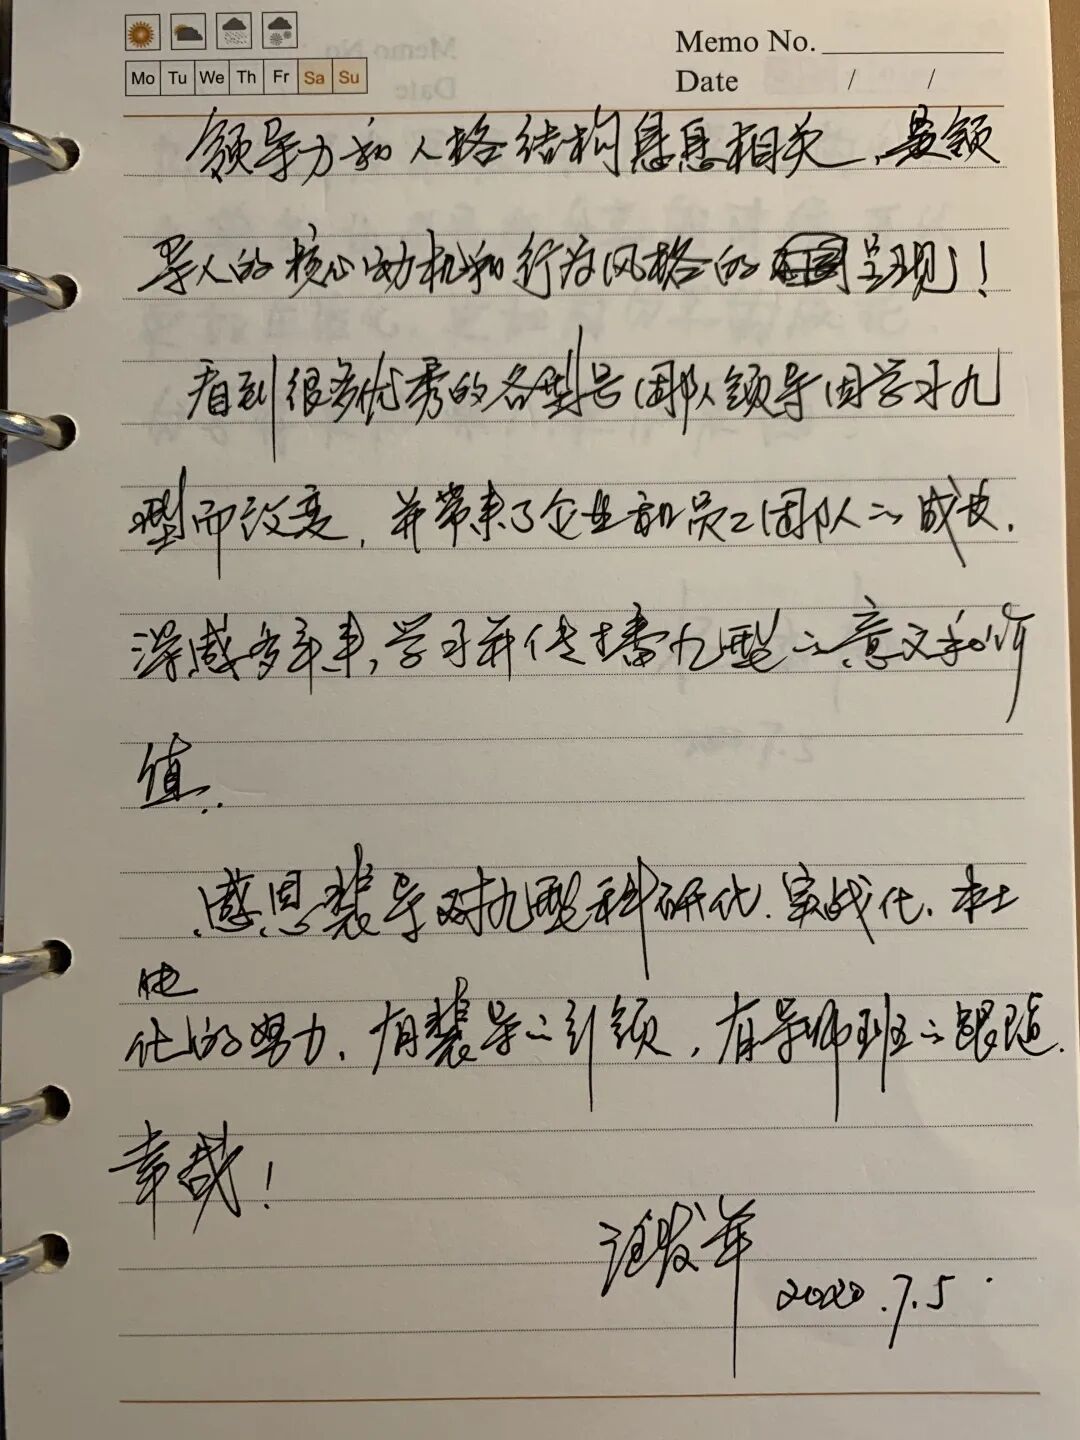 Memo No.
Mo Tu We Th Fr Sa Su
Date / /
领导力和人格结构息息相关，是领
导人的核心动机和行为风格的呈现！
看到很多优秀的各型号团队领导因学习九
型而改变，并带来了企业和员工团队的成长.
深感多年来，学习并传播九型的意义和价
值..
感恩裴导对九型科研化.实战化.本土
化的努力.有裴导的引领，有导师班的跟随.
幸哉！
2020.7.5